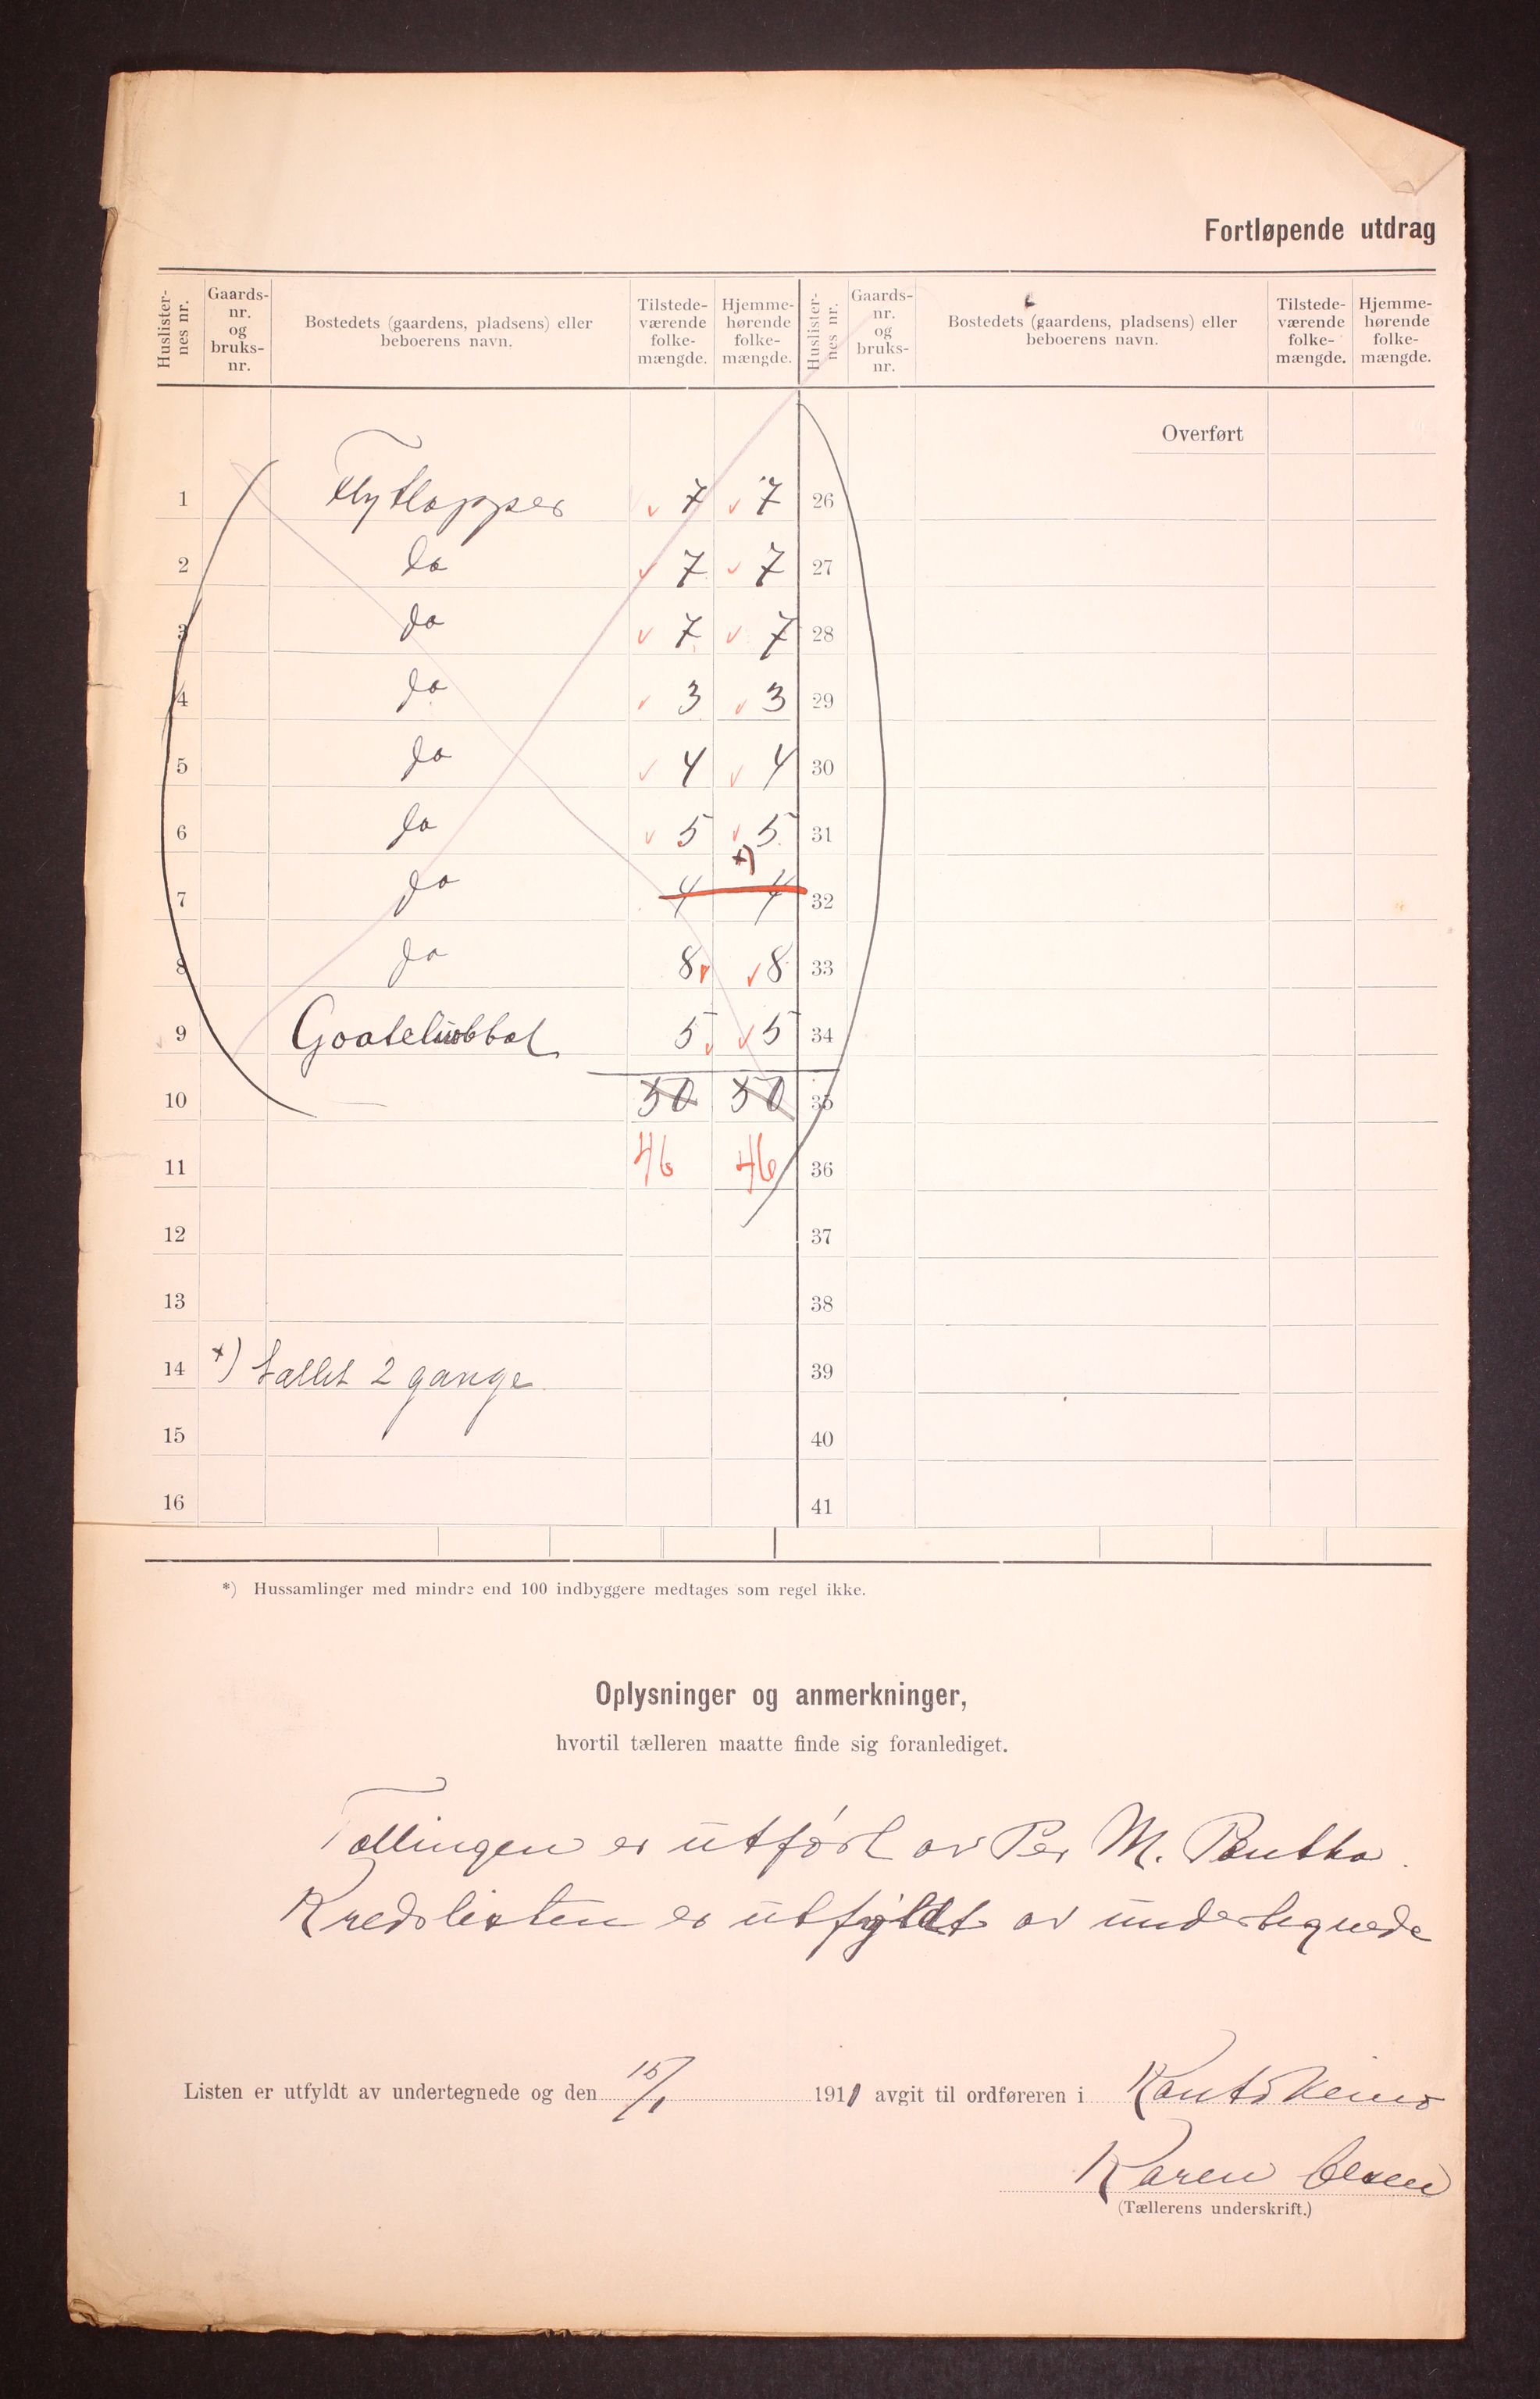 Fortløpende utdrag
Huslister-nes nr. Gaards-nr. og bruks-nr. Bostedets (gaardens, pladsens) eller beboerens navn. Tilstede-værende folke-mængde. Hjemme-hørende folke-mængde. Huslister-nes nr. Gaards-nr. og bruks-nr. Bostedets (gaardens, pladsens) eller beboerens navn. Tilstede-værende folke-mængde. Hjemme-hørende folke-mængde.
Overført
1 Flytlapper 7 7 26
2 do 7 7 27
3 do 7 7 28
4 do 3 3 29
5 do 4 4 30
6 do 5 5 31
7 do 4 x) 4 32
8 do 8 8 33
9 5 5 34
10 50 50 35
11 46 46 36
12 37
13 38
14 x) tællet 2 gange 39
15 40
16 41
*) Hussamlinger med mindre end 100 indbyggere medtages som regel ikke.
Oplysninger og anmerkninger,
hvortil tælleren maatte finde sig foranlediget.
Tællingen er utført av Per M.
Kredslisten er utfyldt av undertegnede
Listen er utfyldt av undertegnede og den 15/1 1911 avgit til ordføreren i Kautokeino
Karen Olsen
(Tællerens underskrift.)